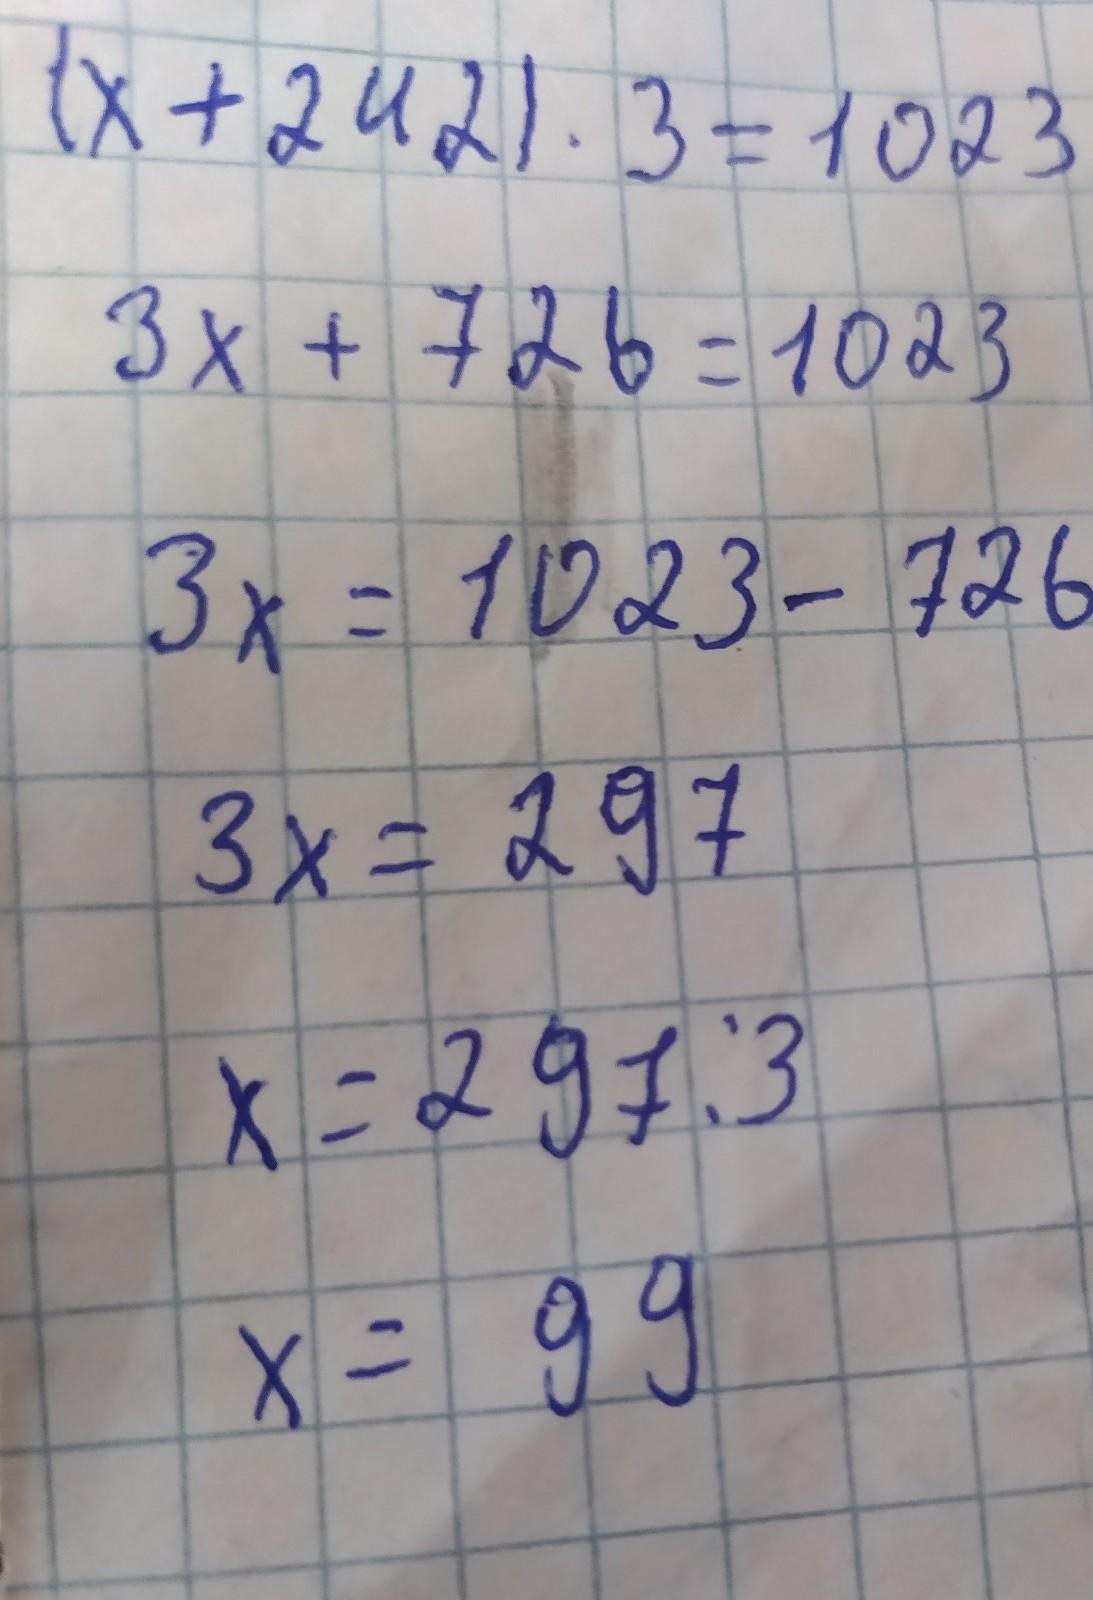 (x + 242) · 3 = 1023
3x + 726 = 1023
3x = 1023 - 726
3x = 297
x = 297 : 3
x = 99